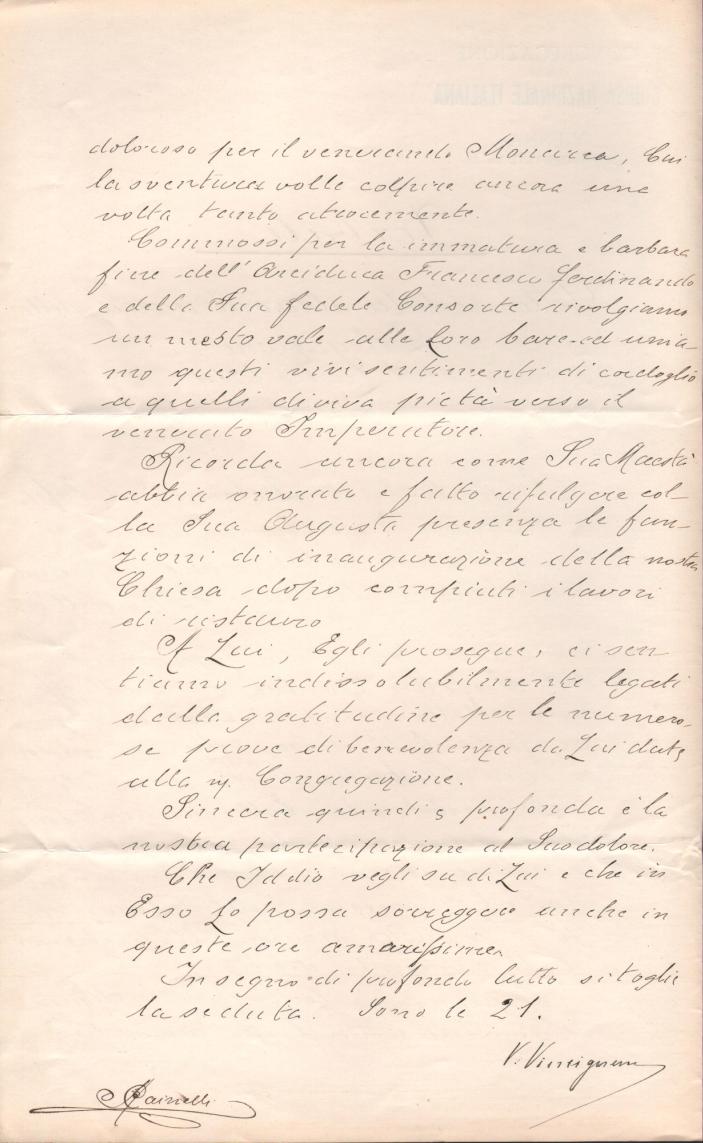 doloroso per il venerando Monarca, Cui
la sventura volle colpire ancora una
volta tanto atrocemente.
Commossi per la immatura e barbara
fine dell'Arciduca Francesco Ferdinando
e della Sua fedele Consorte rivolgiamo
un mesto vale alle Loro bare ed unia-
mo questi vivi sentimenti di cordoglio
a quelli di viva pietà verso il
venerato Imperatore.
Ricorda ancora come Sua Maestà
abbia onorato e fatto rifulgere col-
la Sua Augusta presenza le fun-
zioni di inaugurazione della nostra
Chiesa dopo compiuti i lavori
di ristauro
A Lui, Egli prosegue, ci sen
tiamo indissolubilmente legati
dalla gratitudine per le numero-
se prove di benevolenza da Lui date
alla n. Congregazione.
Sincera quindi e profonda è la
nostra partecipazione al Suo dolore.
Che Iddio vegli su di Lui e che in
Esso Lo possa sorreggere anche in
queste ore amarissime.
In segno di profondo lutto si toglie
la seduta. Sono le 21.